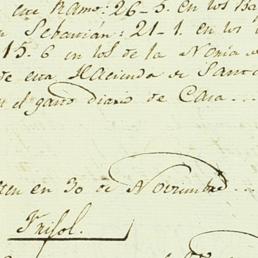 este Ramo: 26-5. en los Ba
n Sebastián: 21-1. en los
15.6 en los de la Noria
de esta Hacienda de Sant
n el gasto diario de Casa...
en en 30 de Noviembre...
Frisol.